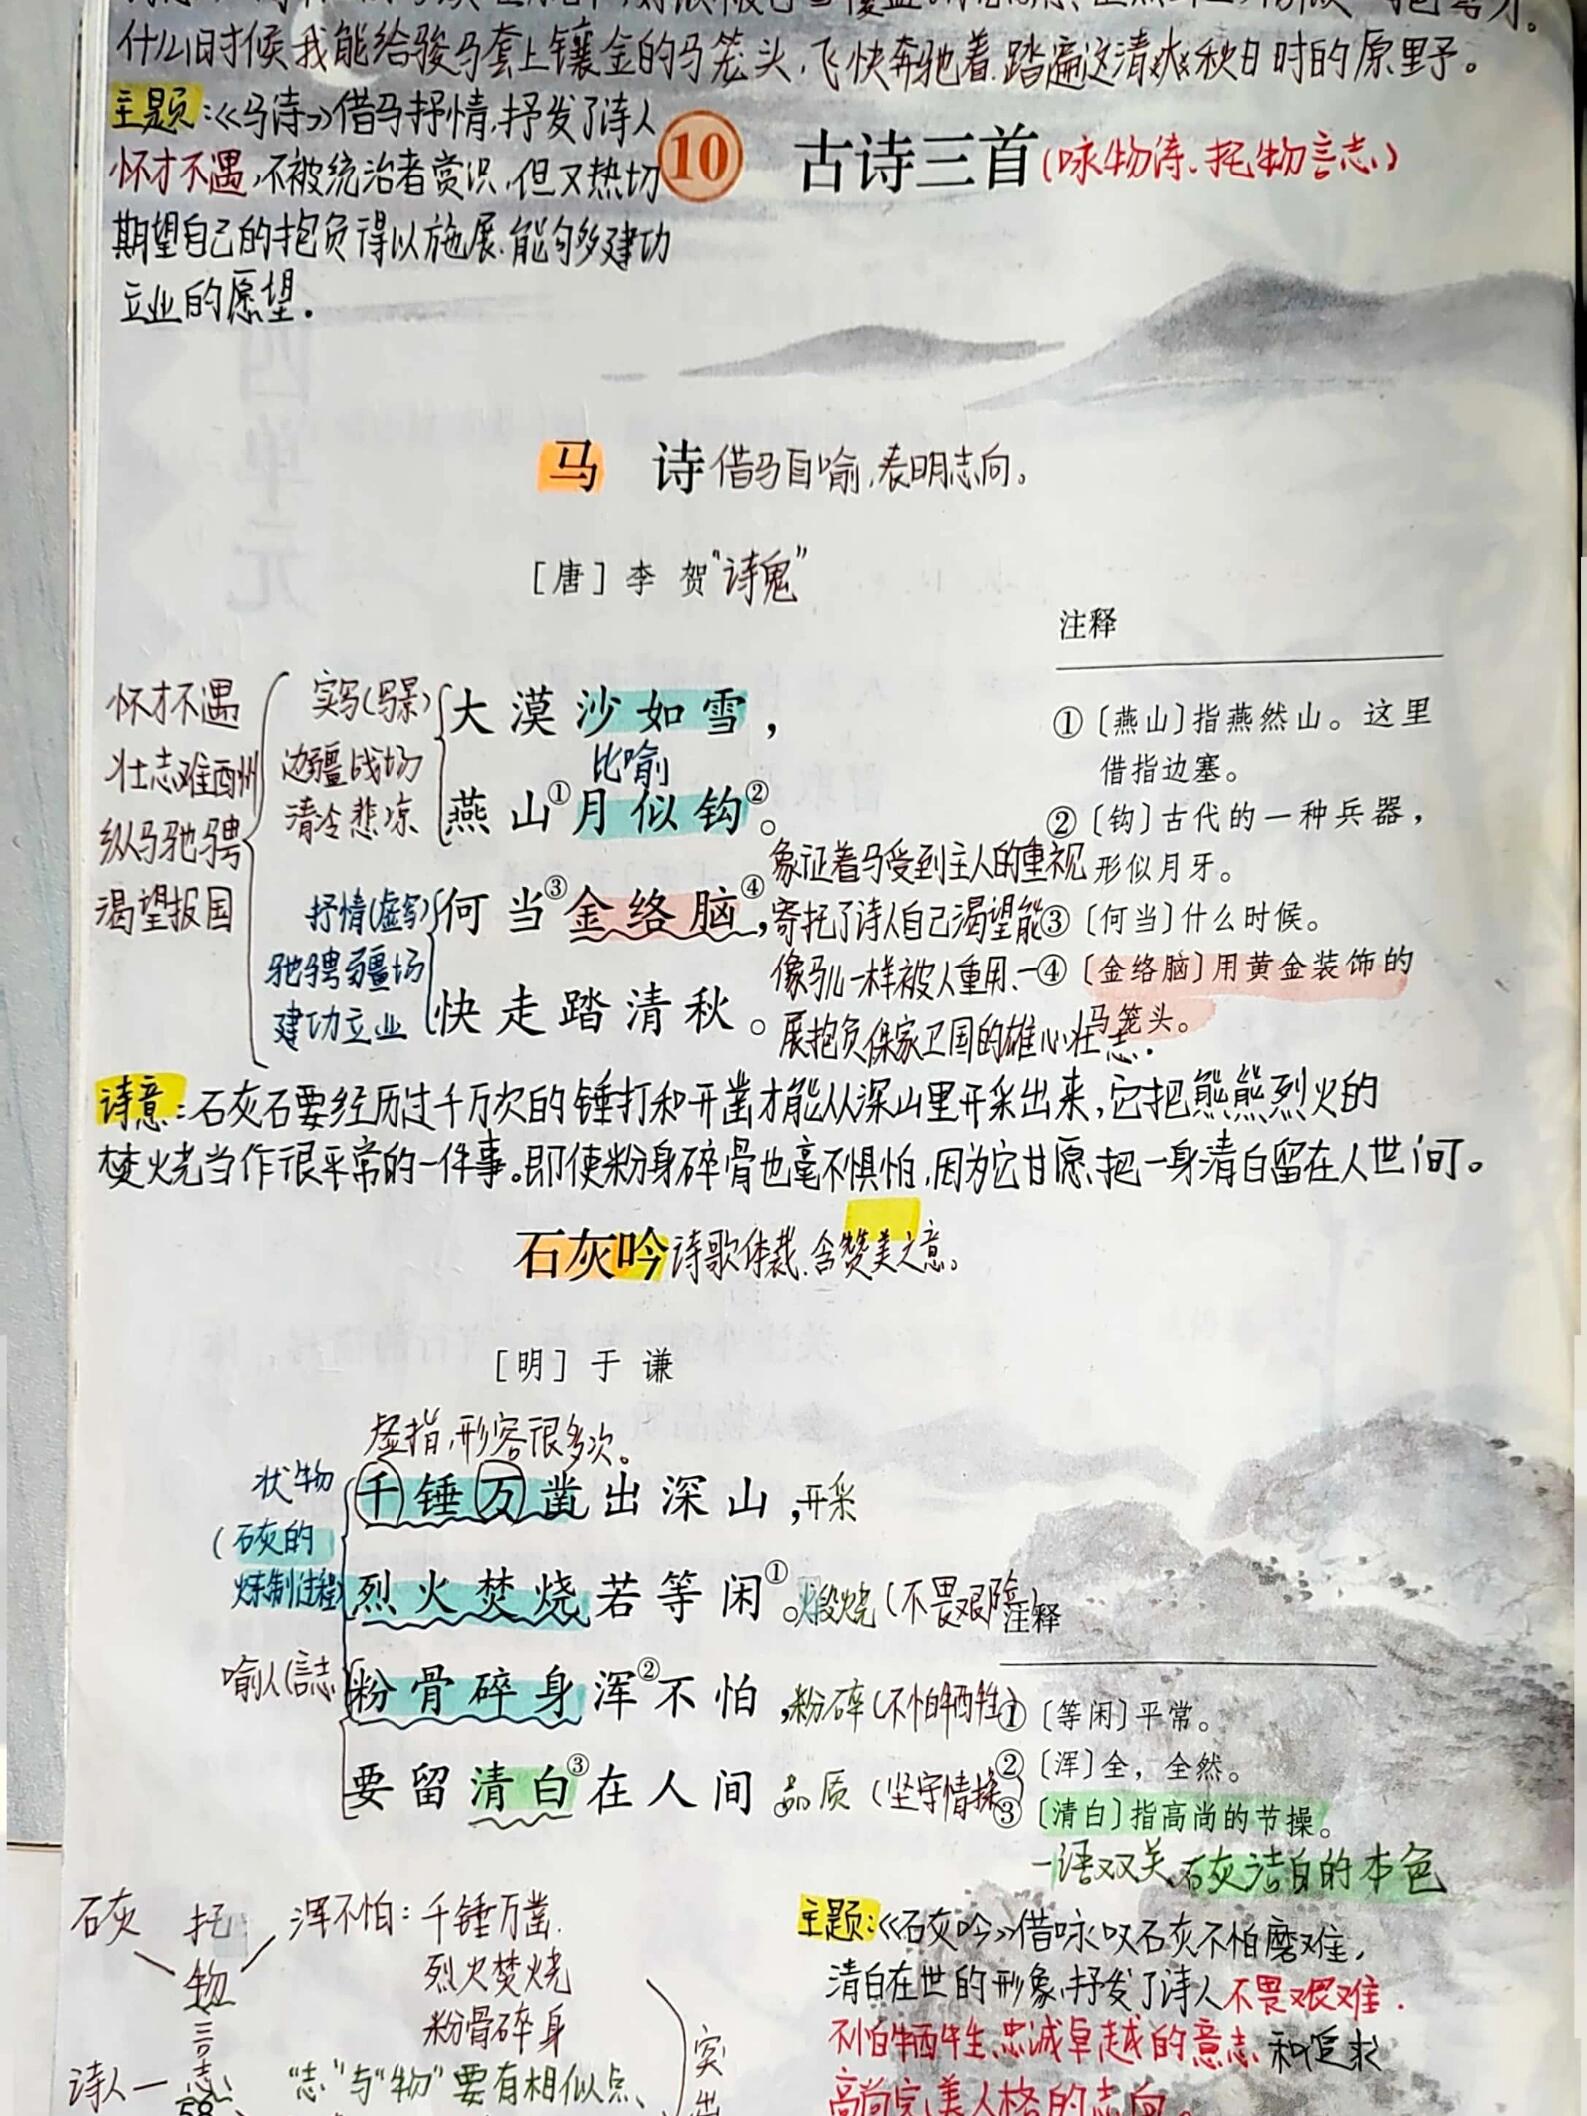 什么时候我能给骏马套上镶金的马笼头,飞快奔驰着,踏遍这清爽秋日时的原野。
主题:《马诗》借马抒情,抒发了诗人
怀才不遇,不被统治者赏识,但又热切
期望自己的抱负得以施展,能够多建功
立业的愿望.
10 古诗三首(咏物诗、托物言志)
马 诗 借马自喻,表明志向。
[唐] 李 贺 "诗鬼"
怀才不遇
壮志难酬
纵马驰骋
渴望报国
实写(写景)
边疆战场
清冷悲凉
大漠沙如雪,
比喻
燕山①月似钩②。
抒情(虚写)
驰骋疆场
建功立业
何当③金络脑④,
快走踏清秋。
象征着马受到主人的重视
寄托了诗人自己渴望能
像马儿一样被人重用、一
展抱负保家卫国的雄心壮志.
注释
①〔燕山〕指燕然山。这里
借指边塞。
②〔钩〕古代的一种兵器,
形似月牙。
③〔何当〕什么时候。
④〔金络脑〕用黄金装饰的
马笼头。
诗意:石灰石要经历过千万次的锤打和开凿才能从深山里开采出来,它把熊熊烈火的
焚火烧当作很平常的一件事。即使粉身碎骨也毫不惧怕,因为它甘愿把一身清白留在人世间。
石灰吟 诗歌体裁,含赞美之意。
[明] 于 谦
虚指,形容很多次。
状物
(石灰的
炼制过程)
喻人(言志
千锤万凿出深山,开采
烈火焚烧若等闲①。煅烧(不畏艰险)
粉骨碎身浑②不怕,粉碎(不怕牺牲)
要留清白③在人间。品质(坚守情操)
注释
①〔等闲〕平常。
②〔浑〕全,全然。
③〔清白〕指高尚的节操。
一语双关,石灰洁白的本色
石灰
托物言志
诗人
浑不怕:千锤万凿.
烈火焚烧
粉骨碎身
突出
"志"与"物"要有相似点、
58
主题:《石灰吟》借咏叹石灰不怕磨难,
清白在世的形象,抒发了诗人不畏艰难.
不怕牺牲,忠诚卓越的意志和追求
高尚完美人格的志向。